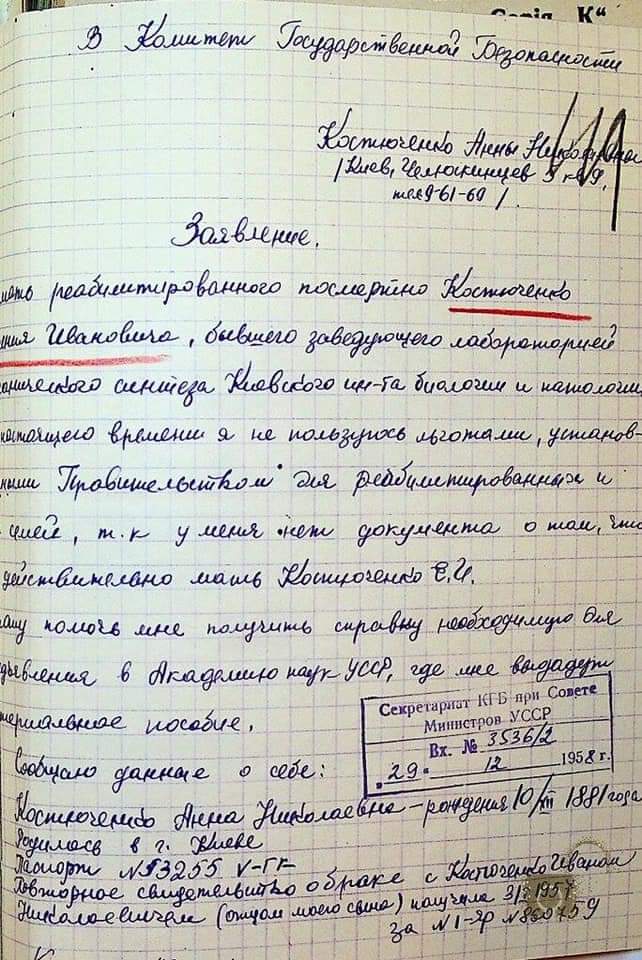 Серія „К"
В Комитет Государственной Безопасности
Костюченко Анны Николаевны
/Киев, Челюскинцев 5 кв 9,
тел 9-61-69/.
Заявление.
мать реабилитированного посмертно Костюченко
ения Ивановича, бывшего заведующего лабораторией
анического синтеза Киевского ин-та биологии и патологии,
настоящего времени я не пользуюсь льготами, установ-
ными Правительством для реабилитированных и
семей, т.к у меня нет документа о том, что
действительно мать Костюченко Е.И.
ашу помочь мне получить справку необходимую для
дъявления в Академию наук УССР, где мне выдадут
териальное пособие.
Секретариат КГБ при Совете
Министров УССР
Вх. № 3536/2
29. 12 1958 г.
Сообщаю данные о себе:
Костюченко Анна Николаевна - рождения 10/XII 1881 года
Родилась в г. Киеве
Паспорт №13255 V-ГК
Повторное свидетельство о браке с Костюченко Иваном
Николаевичем (отцом моего сына) получила 1957
за №1-